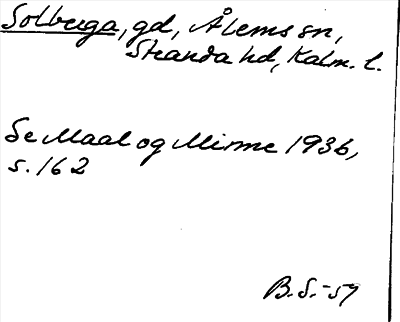 Solberga, gd, Ålems sn,
Stranda hd, Kalm. l.
Se Maal og Minne 1936,
s. 162
B.S.-57